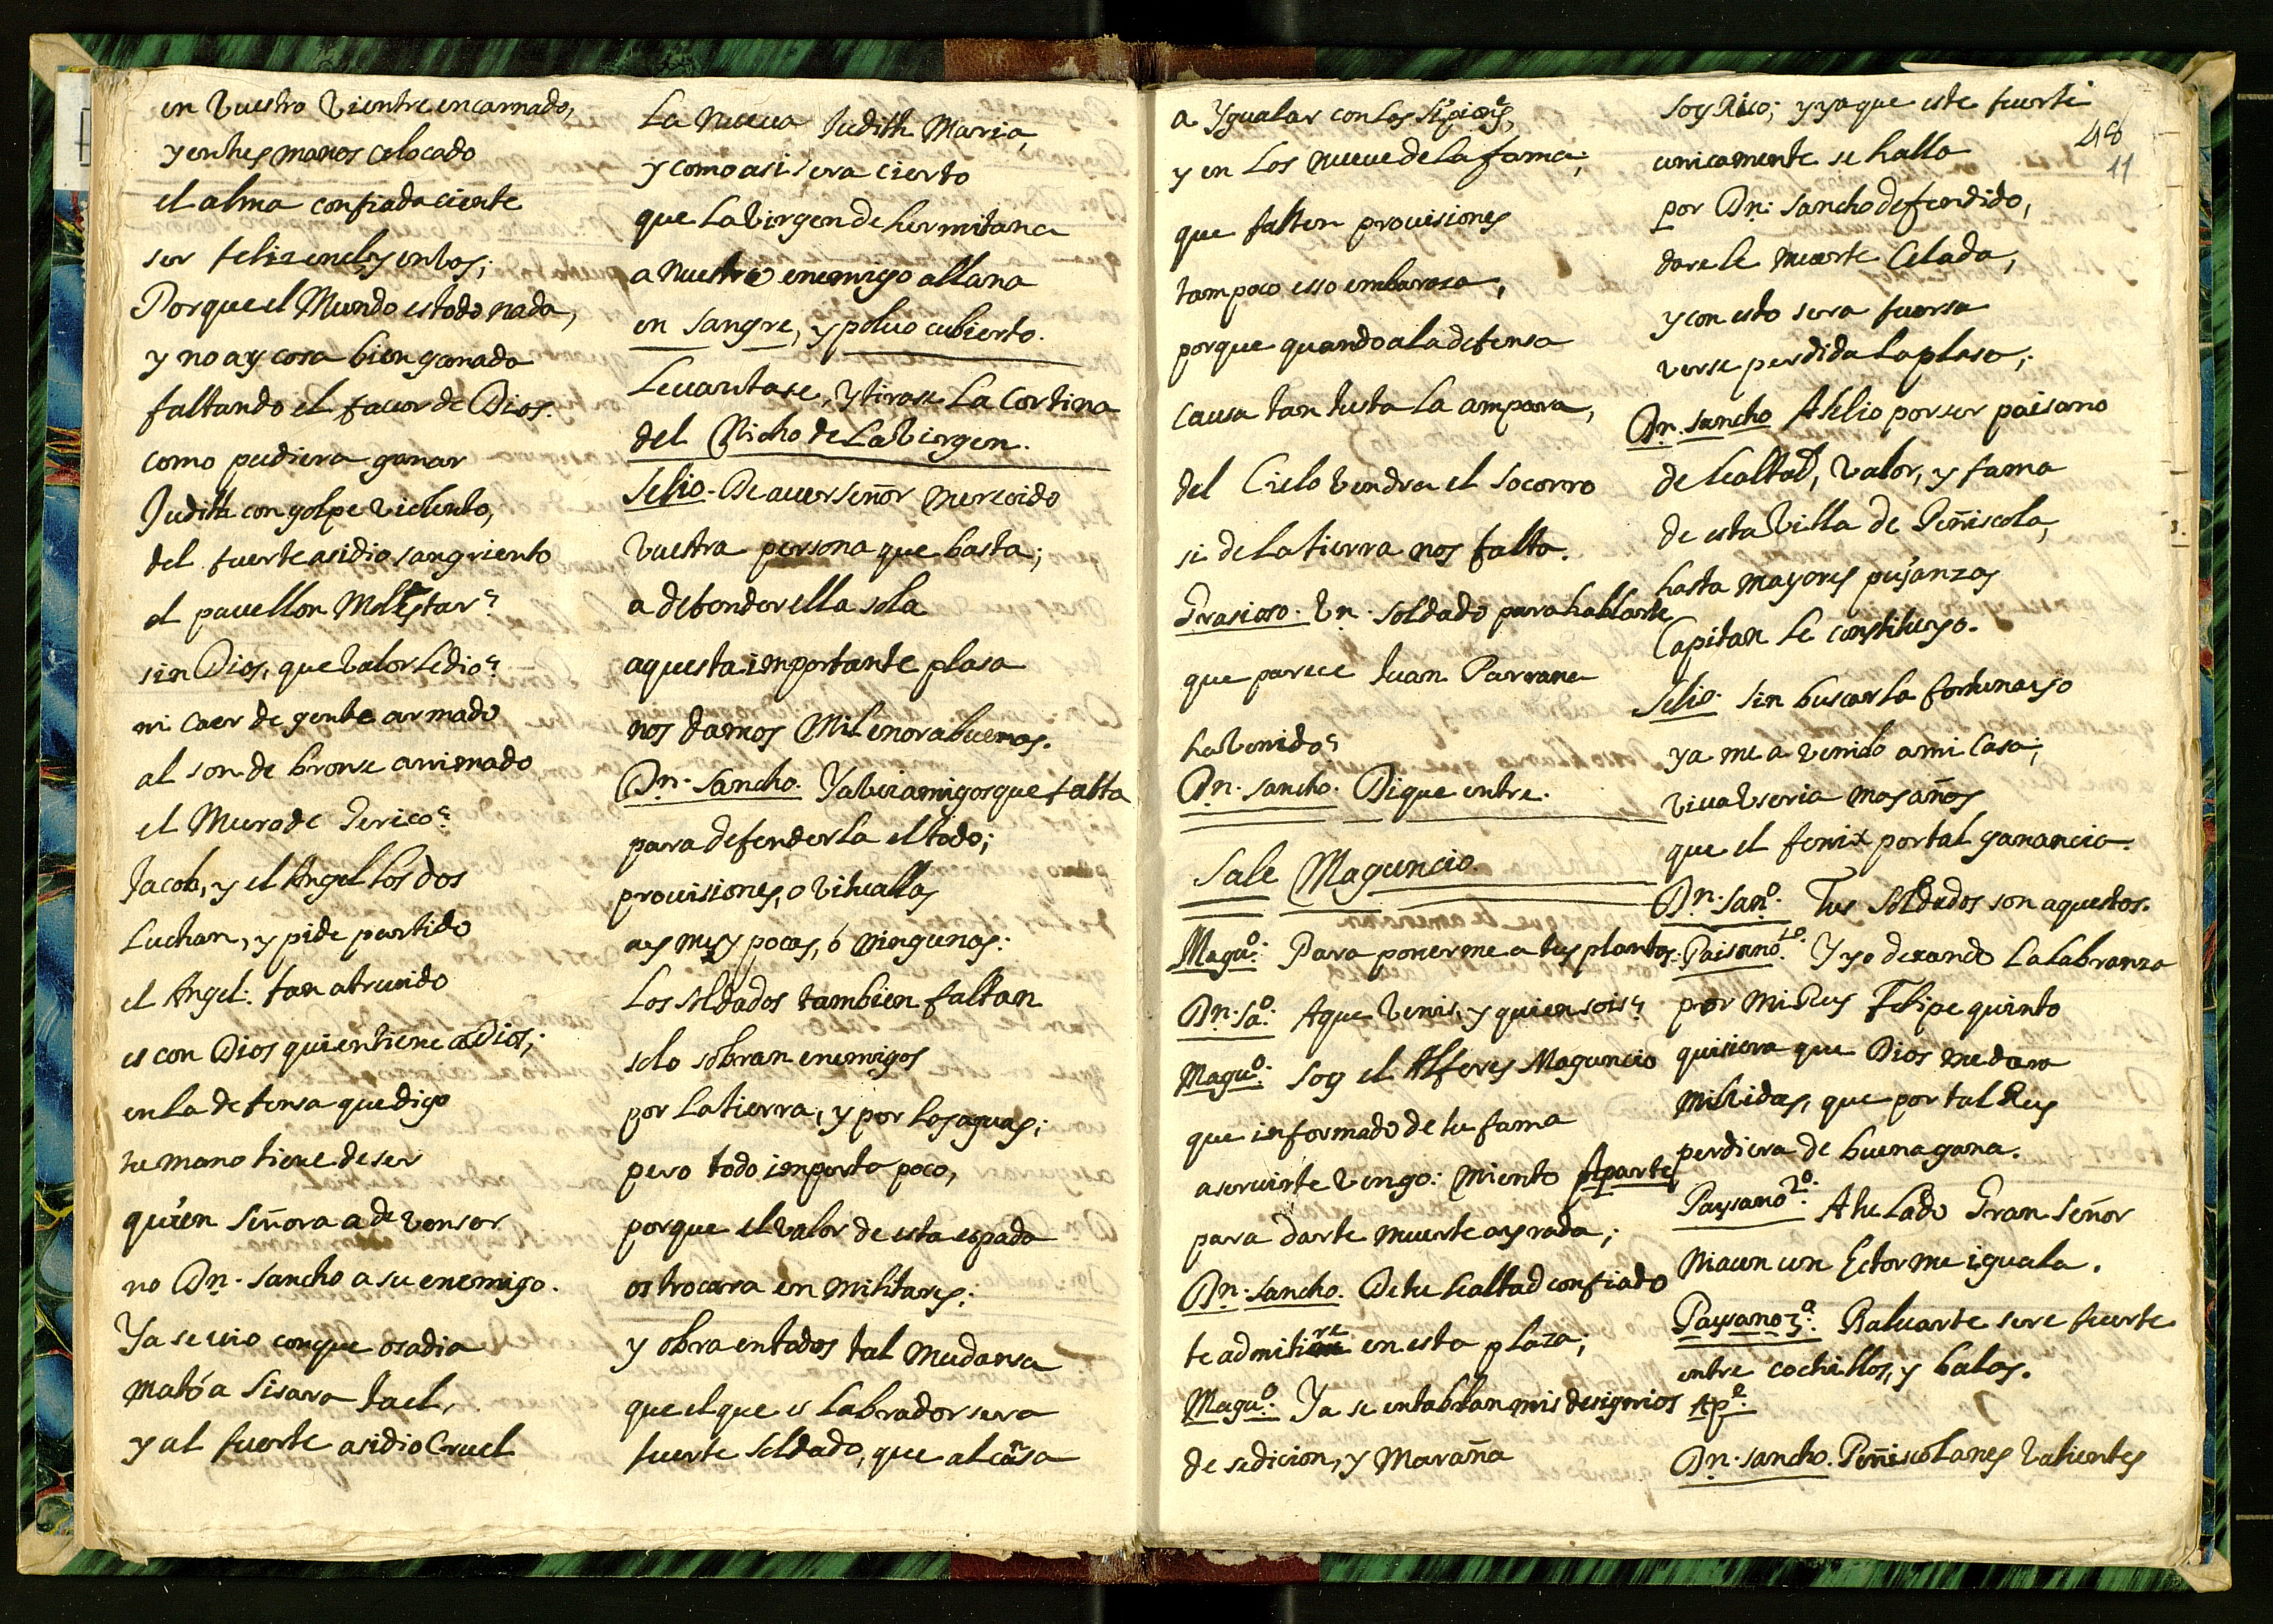 en vuestro vientre encarnado,
y en tus manos colocado
el alma confiada ciente
ser felis en el y en vos;
Porque el Mundo es todo nada,
y no ay cosa bien ganada
faltando el favor de Dios.
como pudiera ganar
Judith con golpe violento,
del fuerte asidio sangriento
el pavellon Militar?
sin Dios, que valor le dio?
ni caer de gente armado
al son de bronse arrimado
el Muro de Jerico?
Jacob, y el Angel los dos
Luchan, y pide partido
el Angel: tan atrevido
es con Dios quien tiene a Dios;
en la defensa que digo
tu mano tiene de ser
quien Señora a de venser
no Dn. Sancho a su enemigo.
Ya se vio con que osadia
mató a Sisara Jael,
y al fuerte asidio Cruel
La nueva Judith Maria,
y como asi sera cierto
que la Virgen de hermitana
a nuestro enemigo allana
en sangre, y polvo cubierto.
Levantase, y tirase la Cortina
del Nicho de la Virgen.
Selio. De aver señor merecido
vuestra persona que basta;
a defender ella sola
aquesta importante plasa
nos damos Mil enorabuenas.
Dn. Sancho. Ya veis amigos que falta
para defenderla el todo;
provisiones, o vituallas
ay muy pocas, ó ningunas:
Los soldados tambien faltan
solo sobran enemigos
por la tierra, y por las aguas;
pero todo importa poco,
porque el valor de esta espada
os trocara en militares;
y obra en todos tal mudansa
que el que es labrador sera
fuerte soldado, que alcansa
a Ygualar con los Sipiones,
y en los nueve de la fama;
que falten provisiones
tampoco esso embarasa,
porque quando a la defensa
causa tan justa la ampara,
del Cielo vendra el socorro
si de la tierra nos falta.
Grasioso. Un soldado para hablarte
que parece Juan Parrana
ha venido?
Dn. Sancho. Di que entre.
Sale Maguncio.
Magu.o: Para ponerme a tus plantas.
Dn. Sa.o: A que venis, y quien sois?
Magu.o: Soy el Alferes Maguncio
que informado de tu fama
a servirte vengo: Miento Aparte
para darte muerte ayrada;
Dn. Sancho. De tu lealtad confiado
te admitire en esta plaza;
Magu.o: Ya se entablan mis designios Ap.e
de sedicion, y Maraña
48
11
soy Rico; y ya que este fuerte
unicamente se halla
por Dn. Sancho defendido,
darele muerte Celada,
y con esto sera fuersa
verse perdida la plasa;
Dn. Sancho A Selio por ser paisano
de lealtad, valor, y fama
de esta Villa de Peñiscola,
hasta mayores pujanzas
Capitan le constituyo.
Selio. Sin buscar la fortuna yo
ya me a venido a mi Casa;
viva Useria mas años
que el fenix por tal ganancia.
Dn. San.o. Tus Soldados son aquestos.
Paisano 1.o: Y yo dexando la labranza
por mi Rey Felipe quinto
quisiera que Dios me dara
mil vidas, que por tal Rey
perdiera de buena gana.
Paysano 2.o: A tu lado Gran Señor
ni aun un Ector me iguala.
Paysano 3.o: Baluarte sere fuerte
entre cochillos, y balas.
Dn. Sancho. Peñiscolanes valientes